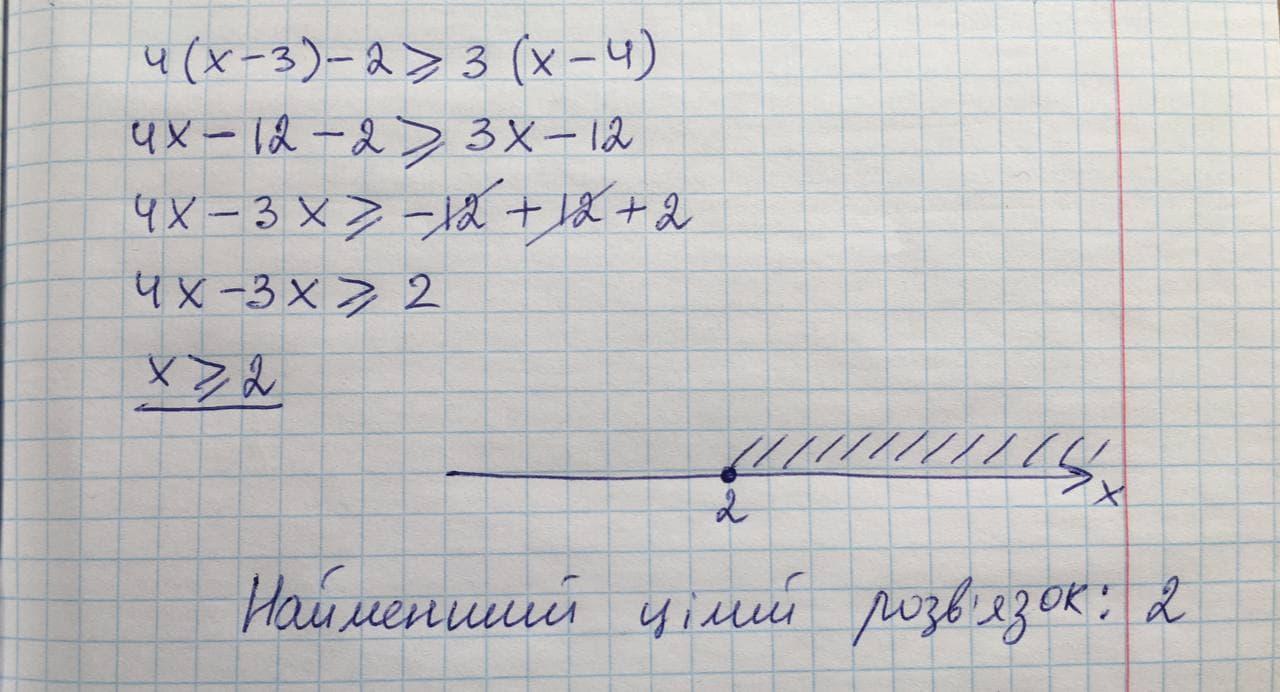 4(x-3)-2⩾3(x-4)
4x-12-2⩾3x-12
4x-3x⩾-12+12+2
4x-3x⩾2
x⩾2
2
x
Найменший цілий розв'язок: 2